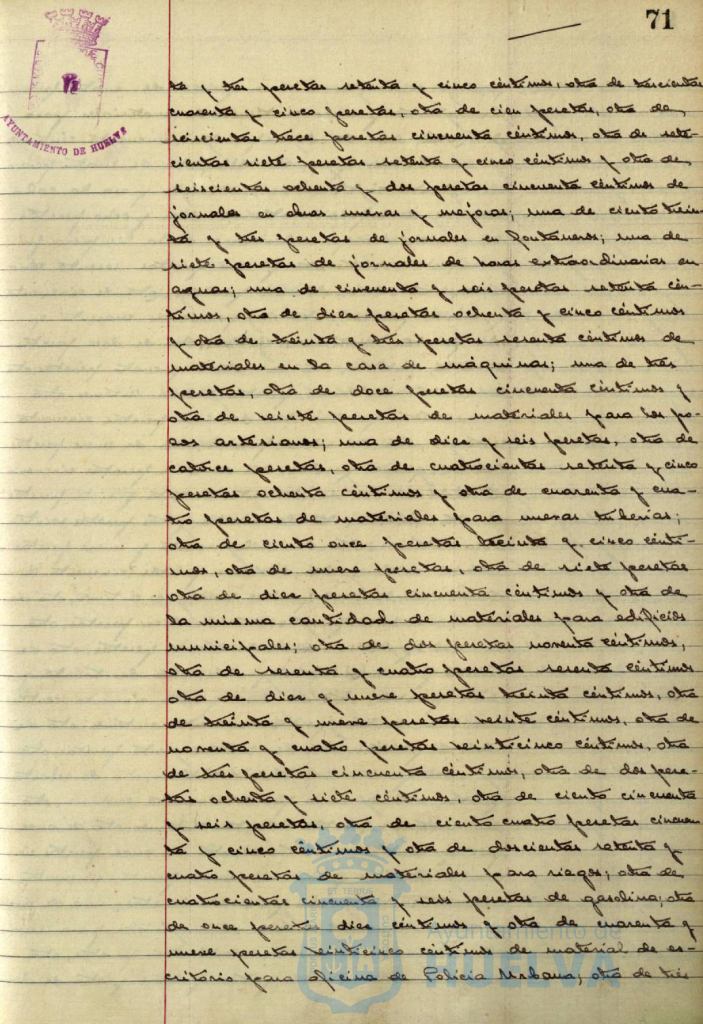 71
AYUNTAMIENTO DE HUELVA
ta y tres pesetas setenta y cinco céntimos, otra de trescientas
cuarenta y cinco pesetas, otra de cien pesetas, otra de
seiscientas trece pesetas cincuenta céntimos, otra de sete-
cientas siete pesetas setenta y cinco céntimos y otra de
seiscientas ochenta y dos pesetas cincuenta céntimos de
jornales en obras nuevas y mejoras; una de ciento trein-
ta y tres pesetas de jornales en fontaneros; una de
siete pesetas de jornales de horas extraordinarias en
aguas; una de cincuenta y seis pesetas setenta cén-
timos, otra de diez pesetas ochenta y cinco céntimos
y otra de treinta y tres pesetas sesenta céntimos de
materiales en la casa de máquinas; una de tres
pesetas, otra de doce pesetas cincuenta céntimos y
otra de veinte pesetas de materiales para los po-
zos artesianos; una de diez y seis pesetas, otra de
catorce pesetas, otra de cuatrocientas setenta y cinco
pesetas ochenta céntimos y otra de cuarenta y cua-
tro pesetas de materiales para nuevas tuberias;
otra de ciento once pesetas treinta y cinco cénti-
mos, otra de nueve pesetas, otra de siete pesetas
otra de diez pesetas cincuenta céntimos y otra de
la misma cantidad de materiales para edificios
municipales; otra de dos pesetas noventa céntimos,
otra de sesenta y cuatro pesetas sesenta céntimos
otra de diez y nueve pesetas treinta céntimos, otra
de treinta y nueve pesetas veinte céntimos, otra de
noventa y cuatro pesetas veinticinco céntimos, otra
de tres pesetas cincuenta céntimos, otra de dos pese-
tas ochenta y siete céntimos, otra de ciento cincuenta
y seis pesetas, otra de ciento cuatro pesetas cincuen-
ta y cinco céntimos y otra de doscientas setenta y
cuatro pesetas de materiales para riegos; otra de
cuatrocientas cincuenta y seis pesetas de gasolina; otra
de once pesetas diez céntimos y otra de cuarenta y
nueve pesetas veinticinco céntimos de material de es-
critorio para oficina de Policia Urbana; otra de tres